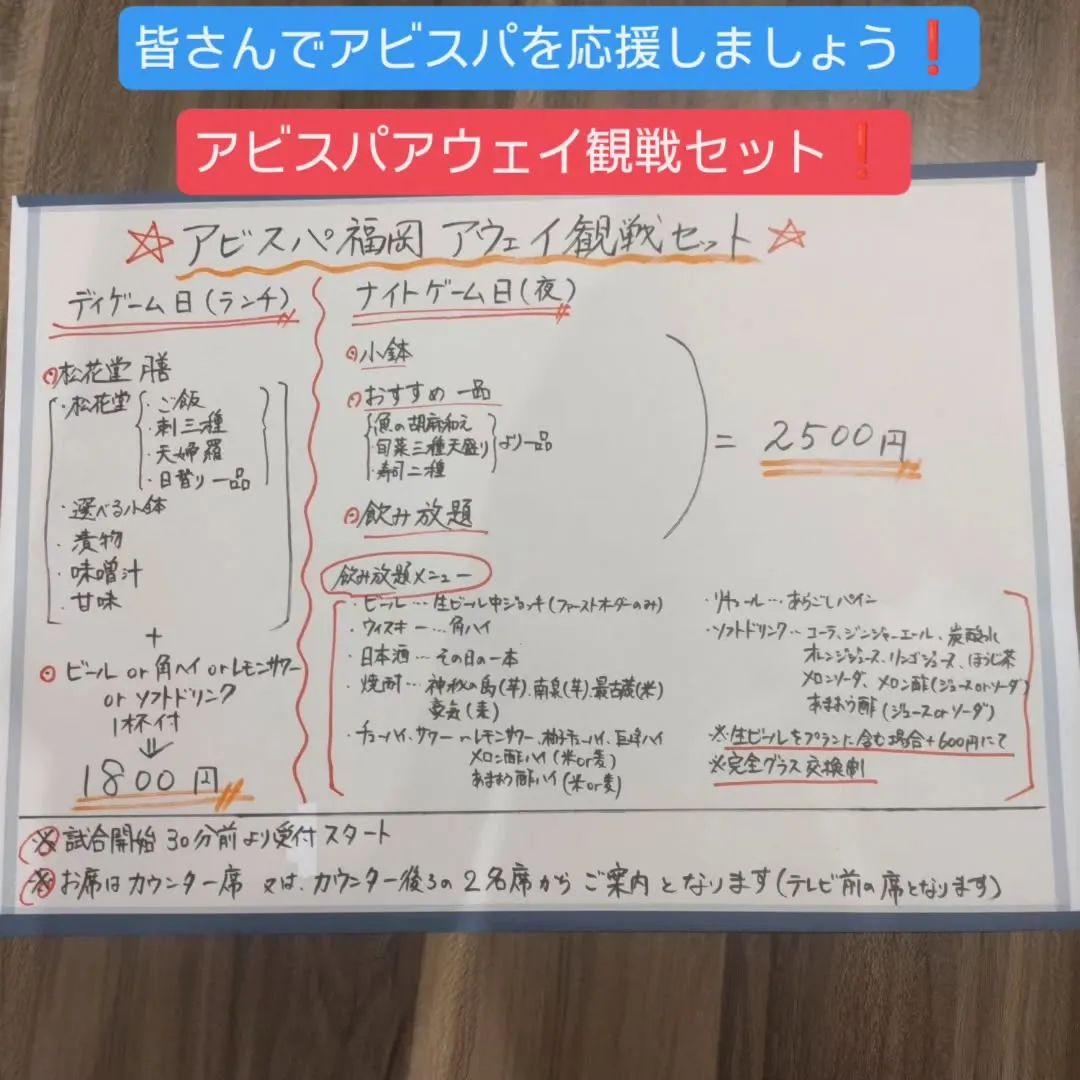 皆さんでアビスパを応援しましょう❗
アビスパアウェイ観戦セット❗
☆アビスパ福岡 アウェイ観戦セット☆
デイゲーム日(ランチ)
◎松花堂膳
・松花堂
・ご飯
・刺三種
・天婦羅
・日替り一品
・選べる小鉢
・漬物
・味噌汁
・甘味
+
◎ビール or 角ハイ or レモンサワー
or ソフトドリンク
1杯付
1800円
ナイトゲーム日(夜)
◎小鉢
◎おすすめ一品
・魚の胡麻和え
・旬菜三種天盛り
・寿司二種
より一品
◎飲み放題
= 2500円
飲み放題メニュー
・ビール…生ビール中ジョッキ(ファーストオーダーのみ)
・ウィスキー…角ハイ
・日本酒…その日の一本
・焼酎…神秘の島(芋)、南泉(芋)、最古蔵(米)
(麦)
・チューハイ、サワー…レモンサワー、柚子チューハイ、巨峰ハイ
メロン酢ハイ(米or麦)
あまおう酢ハイ(米or麦)
・リキュール…あらごしパイン
・ソフトドリンク…コーラ、ジンジャーエール、炭酸水
オレンジジュース、リンゴジュース、ほうじ茶
メロンソーダ、メロン酢(ジュースorソーダ)
あまおう酢(ジュースorソーダ)
※生ビールをプランに含む場合+600円にて
※完全グラス交換制
※試合開始30分前より受付スタート
※お席はカウンター席 又は、カウンター後ろの2名席からご案内となります(テレビ前の席となります)